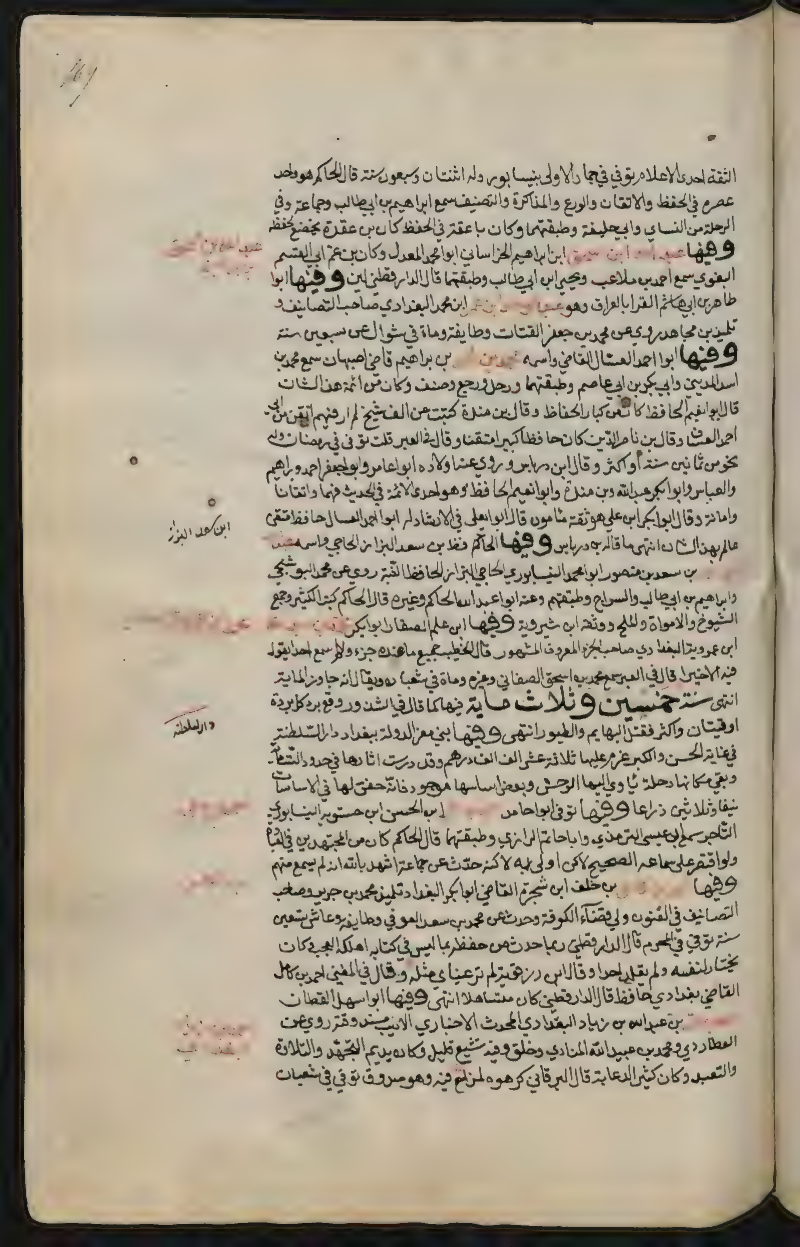 الثقة احد الاعلام توفي في جماد الاولى بنيسابور وله اثنتان وسبعون سنة قال الحاكم هو واحد
عصره في الحفظ والاتقان والورع والمذاكرة والتصنيف سمع ابراهيم بن ابي طالب وجماعة وفي
الرحلة من النساي وابي خليفة وطبقتهما وكان باعقة في الحفظ كان بن عقدة يخضع لحفظه
وفيها عبد الله ابن اسحق ابن ابراهيم الخراساني ابوا محمد المعدل وكان بن عم ابي القسم
البغوي سمع احمد بن ملاعب ويحيى ابن ابي طالب وطبقتهما قال الدارقطني لين وفيها ابوا
طاهر بن ابي هاشم القرا بالعراق وهو عبد الواحد ابن عمر ابن محمد البغدادي صاحب التصانيف و
تلميذ بن مجاهد روي عن محمد بن جعفر القتات وطايفة ومات في شوال عن سبعين سنة
وفيها ابوا احمد العسال القاضي واسمه محمد بن احمد بن براهيم قاضي اصبهان سمع محمد بن
اسد المديني وابي بكر بن ابي عاصم وطبقتهما ورحل ورجع وصنف وكان من ائمة هذا الشان
قال ابوا نعيم الحافظ كان من كبار الحفاظ وقال بن مندة كتبت عن الف شيخ لم ار فيهم اتقن من ابي
احمد العسال وقال بن ناصر الدين كان حافظا كبيرا متقنا وقال في العبر قلت توفي في رمضان وله
نحو من ثمانين سنة او اكثر وقال ابن درباس وروي عنه اولاده ابوا عامر وابوا جعفر احمد وبراهيم
والعباس وابوا بكر عبد الله وبن مندة وابوا نعيم الحافظ وهو احد الائمة في الحديث فهما واتقانا
وامانة وقال ابوا بكر ابن علي هو ثقة مامون قال ابوا يعلى في الارشاد له ابوا احمد العسال حافظ متقن
عالم بهذا الشان انتهى ما قاله بن درباس وفيها الحاكم بن سعد البزاز الحاجي واسمه
بن سعد بن منصور ابوا محمد النيسابوري الحاجي البزاز الحافظ الثبة روي عن محمد البوشنجي
وابراهيم بن ابي طالب والسراج وطبقتهم وعنه ابوا عبد الله الحاكم وغيره قال الحاكم كتب الكثير وجمع
الشيوخ والابواب والملح ووثقه ابن شيروية وفيها ابن علم الصفار ابوا بكر
ابن عمروية البغدادي صاحب الجزء المعروف المشهور قال الخطيب جميع ما عنده جزء ولم اسمع احدا يقول
فيه الا خيرا قال في العبر سمع محمد بن اسحق الصغاني وغيره ومات في شعبان ويقال انه جاوز الماية
انتهى سنة خمسين وثلاث ماية فيها كما قال في الشذور وقع برد كل بردة
اوقيتان واكثر فقتل البهايم والطيور انتهى وفيها بني معز الدولة ببغداد دار السلطنة
في غاية الحسن والكبر غرم عليها ثلاثة عشر الف الف درهم وقد درست اثارها في حدود الستماية
وبقي مكانها دحلة ياوي اليها الوحش وبعض اساسها موجود فانه حفر لها في الاساسات
نيفا وثلاثين ذراعا وفيها توفي ابوا حامد ابن الحسن ابن حسنويه النيسابوري
التاجر سمع ابن عيسى الترمذي وابا حاتم الرازي وطبقتهما قال الحاكم كان من المجتهدين في العبادة
ولو اقتصر على سماعه الصحيح لكان اولى به لاكنه حدث عن جماعة اشهد بالله انه لم يسمع منهم
وفيها بن خلف ابن شجرة القاضي ابوا بكر البغدادي تلميذ محمد بن جرير وصاحب
التصانيف في الفنون ولي قضاء الكوفة وحدث عن محمد بن سعد العوفي وطايفة وعاش تسعين
سنة توفي في المحرم قال الدارقطني ربما حدث من حفظه بما ليس في كتابه اهلكه العجب كان
يختار لنفسه ولم يقلد احدا وقال ابن رزقوية لم تر عيناي مثله وقال في المغني احمد بن كامل
القاضي بغدادي حافظ قال الدارقطني كان متساهلا انتهى وفيها ابوا سهل القطان
بن عبد الله بن زياد البغدادي المحدث الاخباري الاديب مسند وقته روي عن
العطاردي ومحمد بن عبيد الله المنادي وخلق وفيه تشيع قليل وكان يديم التهجد والتلاوة
والتعبد وكان كثير الدعابة قال البرقاني كرهوه لمزاح فيه وهو صدوق توفي في شعبان
ابن سعد البزاز
دار السلطنة